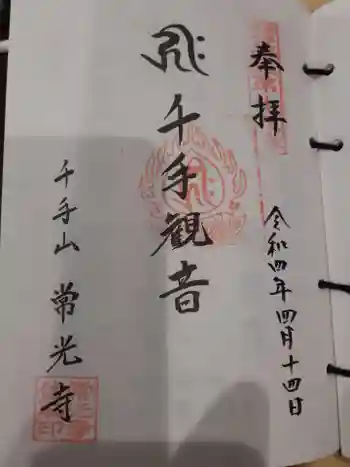 奉拝
令和四年四月十四日
千手観音
千手山 常光寺